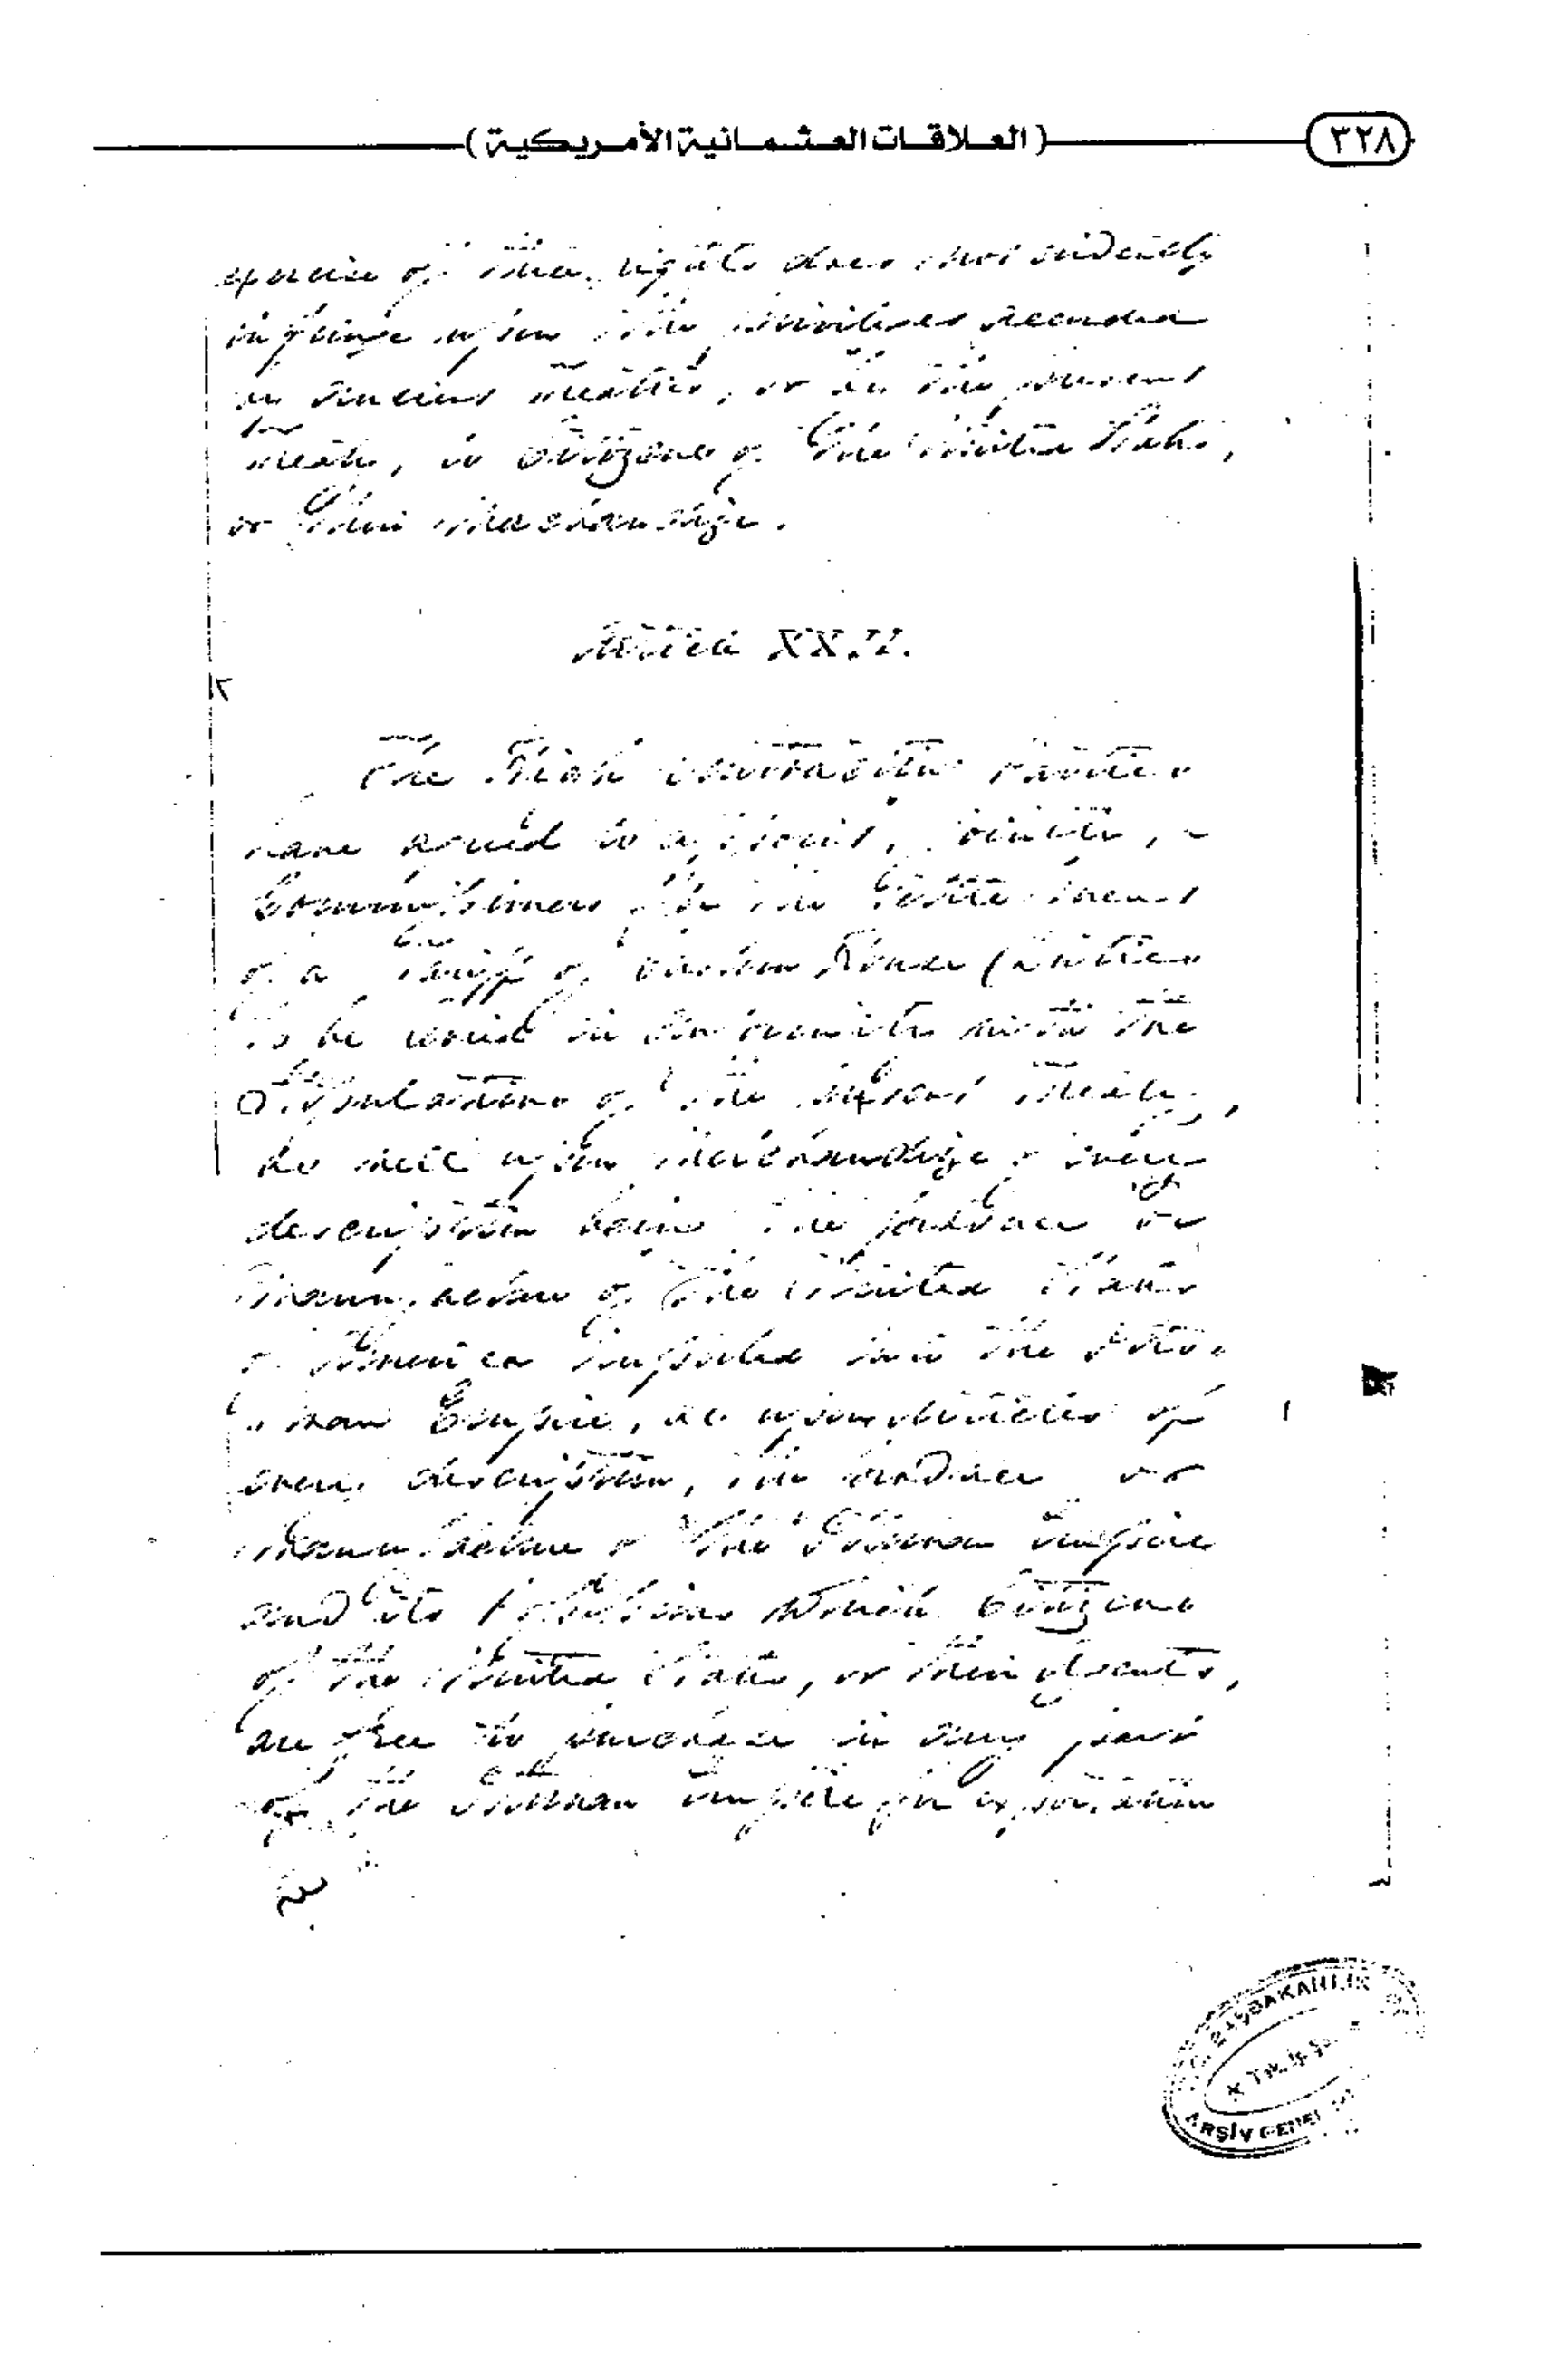 (العلاقات العثمانية الأمريكية)
٣٢٨
exercise of these rights does not evidently
infringe upon the privileges accorded
by ancient treaties, or by the present
treaty, to citizens of the United States,
or their merchandize.
Article XXII.
The High contracting Parties
have agreed to appoint, jointly,
Commissioners for the settlement
of a Tariff of Custom House Duties
to be levied in conformity with the
Stipulations of the present Treaty,
as well upon merchandize of every
description being the produce or
manufacture of the United States
of America imported into the Otto-
man Empire, as upon articles of
every description, the produce or
manufacture of the Ottoman Empire
and its possessions which Citizens
of the United States, or their Agents,
are free to purchase in any part
of the Ottoman Empire for exportation
BAŞBAKANLIK
ARŞİV GENEL